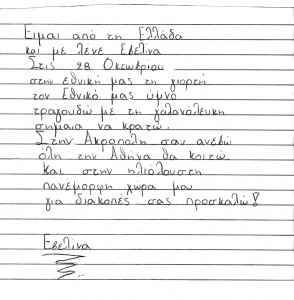 Είμαι από τη Ελλάδα
και με λένε Εβελίνα
Στις 28 Οκτωβρίου
στην εθνική μας τη γιορτή
τον Εθνικό μας ύμνο
τραγουδώ με τη γαλανόλευκη
σημαία να κρατώ.
Στην Ακρόπολη σαν ανεβώ
όλη την Αθήνα θα κοιτώ.
Και στην ηλιόλουστη
πανέμορφη χώρα μου
για διακοπές σας προσκαλώ!
Εβελίνα